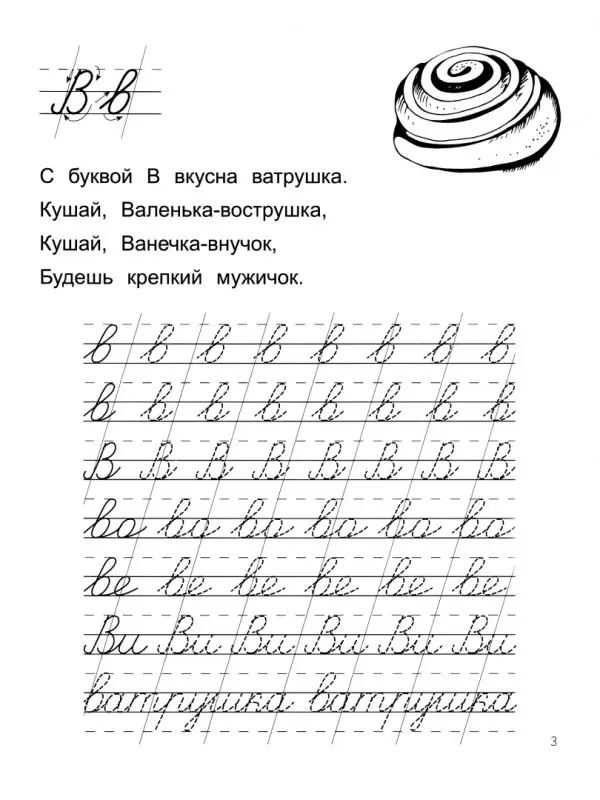 В в
С буквой В вкусна ватрушка.
Кушай, Валенька-вострушка,
Кушай, Ванечка-внучок,
Будешь крепкий мужичок.
в в в в в в в в
в в в в в в в в
В В В В В В В В
во во во во во во
ве ве ве ве ве ве
Ви Ви Ви Ви Ви Ви
ватрушка ватрушка
3